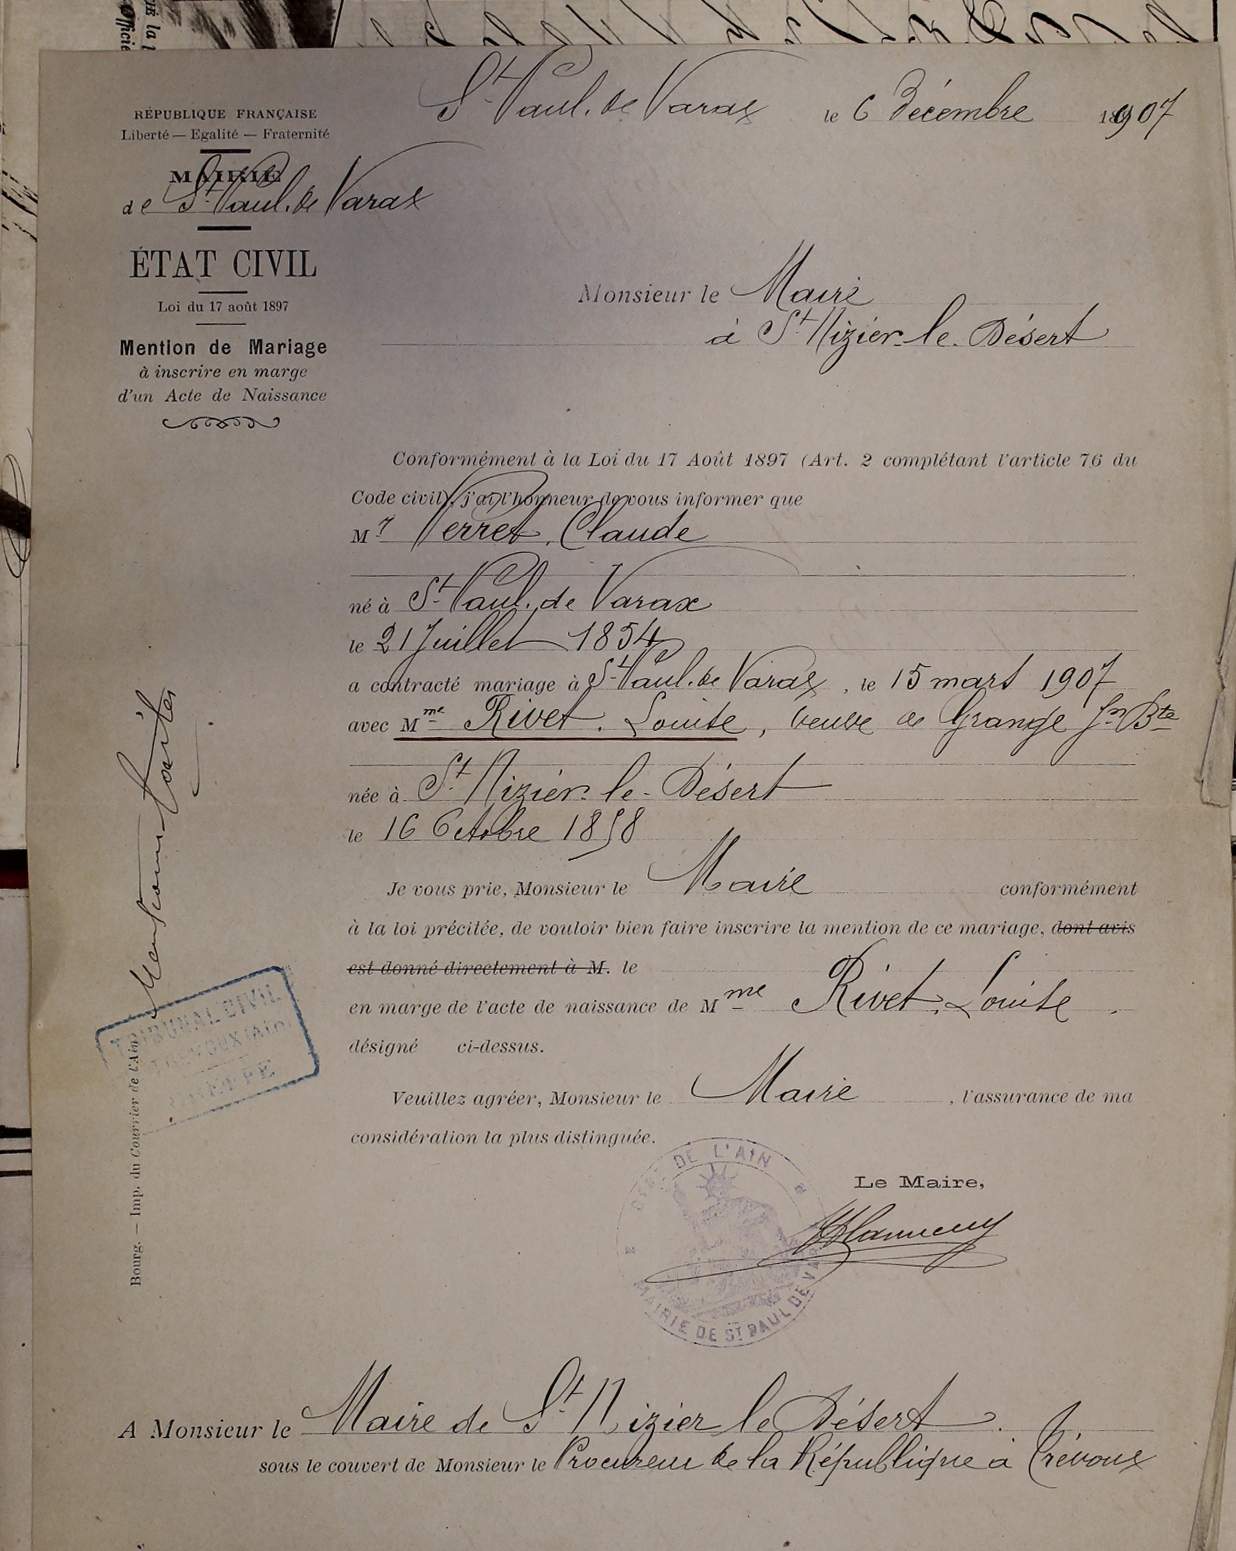 St Paul. de Varax le 6 Décembre 1907
RÉPUBLIQUE FRANÇAISE
Liberté — Egalité — Fraternité
MAIRIE
de St Paul. de Varax
ÉTAT CIVIL
Loi du 17 août 1897
Mention de Mariage
à inscrire en marge
d'un Acte de Naissance
Monsieur le Maire
à St Nizier-le-Désert
Conformément à la Loi du 17 Août 1897 (Art. 2 complétant l'article 76 du
Code civil), j'ai l'honneur de vous informer que
Mr Perret, Claude
né à St Paul. de Varax
le 21 Juillet 1854
a contracté mariage à St Paul. de Varax, le 15 mars 1907
avec Mme Rivet, Louise, veuve de Grange Jn Bte
née à St Nizier-le-Désert
le 16 Octobre 1858
Je vous prie, Monsieur le Maire conformément
à la loi précitée, de vouloir bien faire inscrire la mention de ce mariage, dont avis
est donné directement à M. le
en marge de l'acte de naissance de Mme Rivet, Louise,
désigné ci-dessus.
Veuillez agréer, Monsieur le Maire, l'assurance de ma
considération la plus distinguée.
Le Maire,
DEPT DE L'AIN
MAIRIE DE ST PAUL DE VARAX
A Monsieur le Maire de St Nizier le Désert.
sous le couvert de Monsieur le Procureur de la République à Trévoux
TRIBUNAL CIVIL
TRÉVOUX (AIN)
GREFFE
Bourg. — Imp. du Courrier de l'Ain